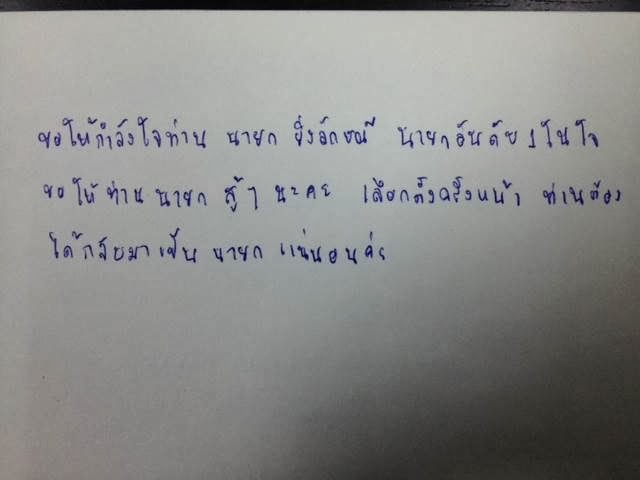 ขอให้กำลังใจท่าน นายก ยิ่งลักษณ์ นายกอันดับ 1 ในใจ
ขอให้ท่าน นายก สู้ๆ นะคะ เลือกตั้งครั้งหน้า ท่านต้อง
ได้กลับมาเป็น นายก แน่นอนค่ะ